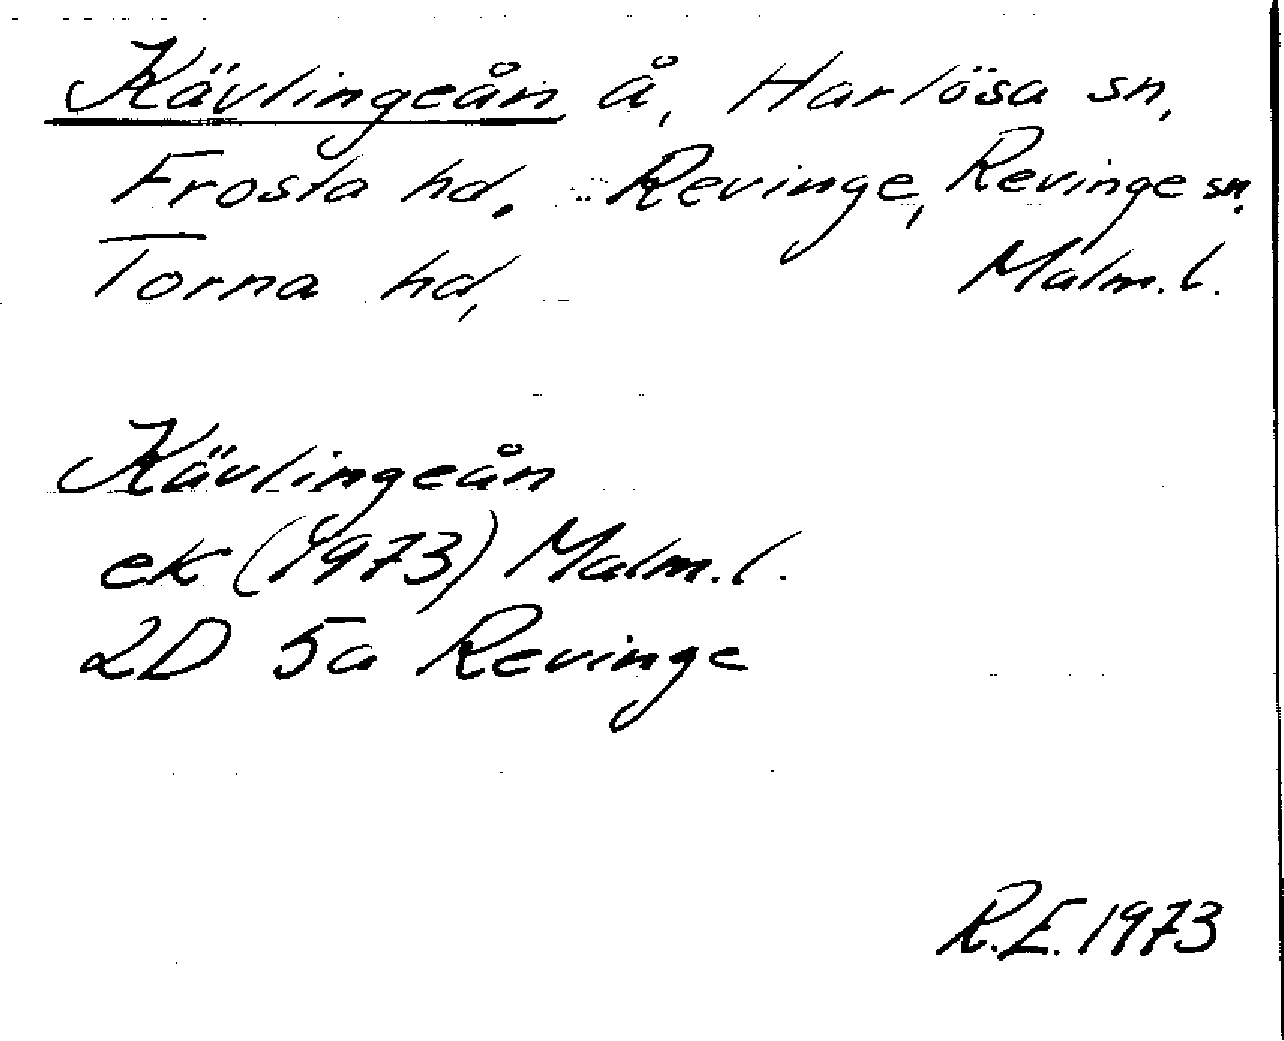 Kävlingeån å, Harlösa sn,
Frosta hd. Revinge, Revinge sn.
Torna hd, Malm. l.
Kävlingeån
ek (1973) Malm. l.
2D 5a Revinge
R.E. 1973